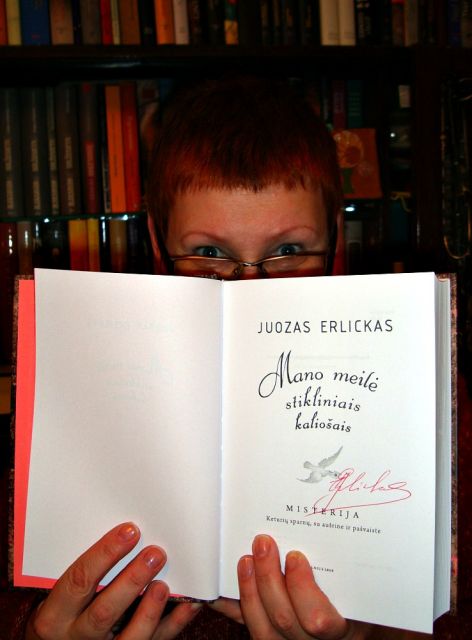 JUOZAS ERLICKAS
Mano meilė
stikliniais
kaliošais
MISTERIJA
Keturių sparnų, su audrine ir pašvaiste